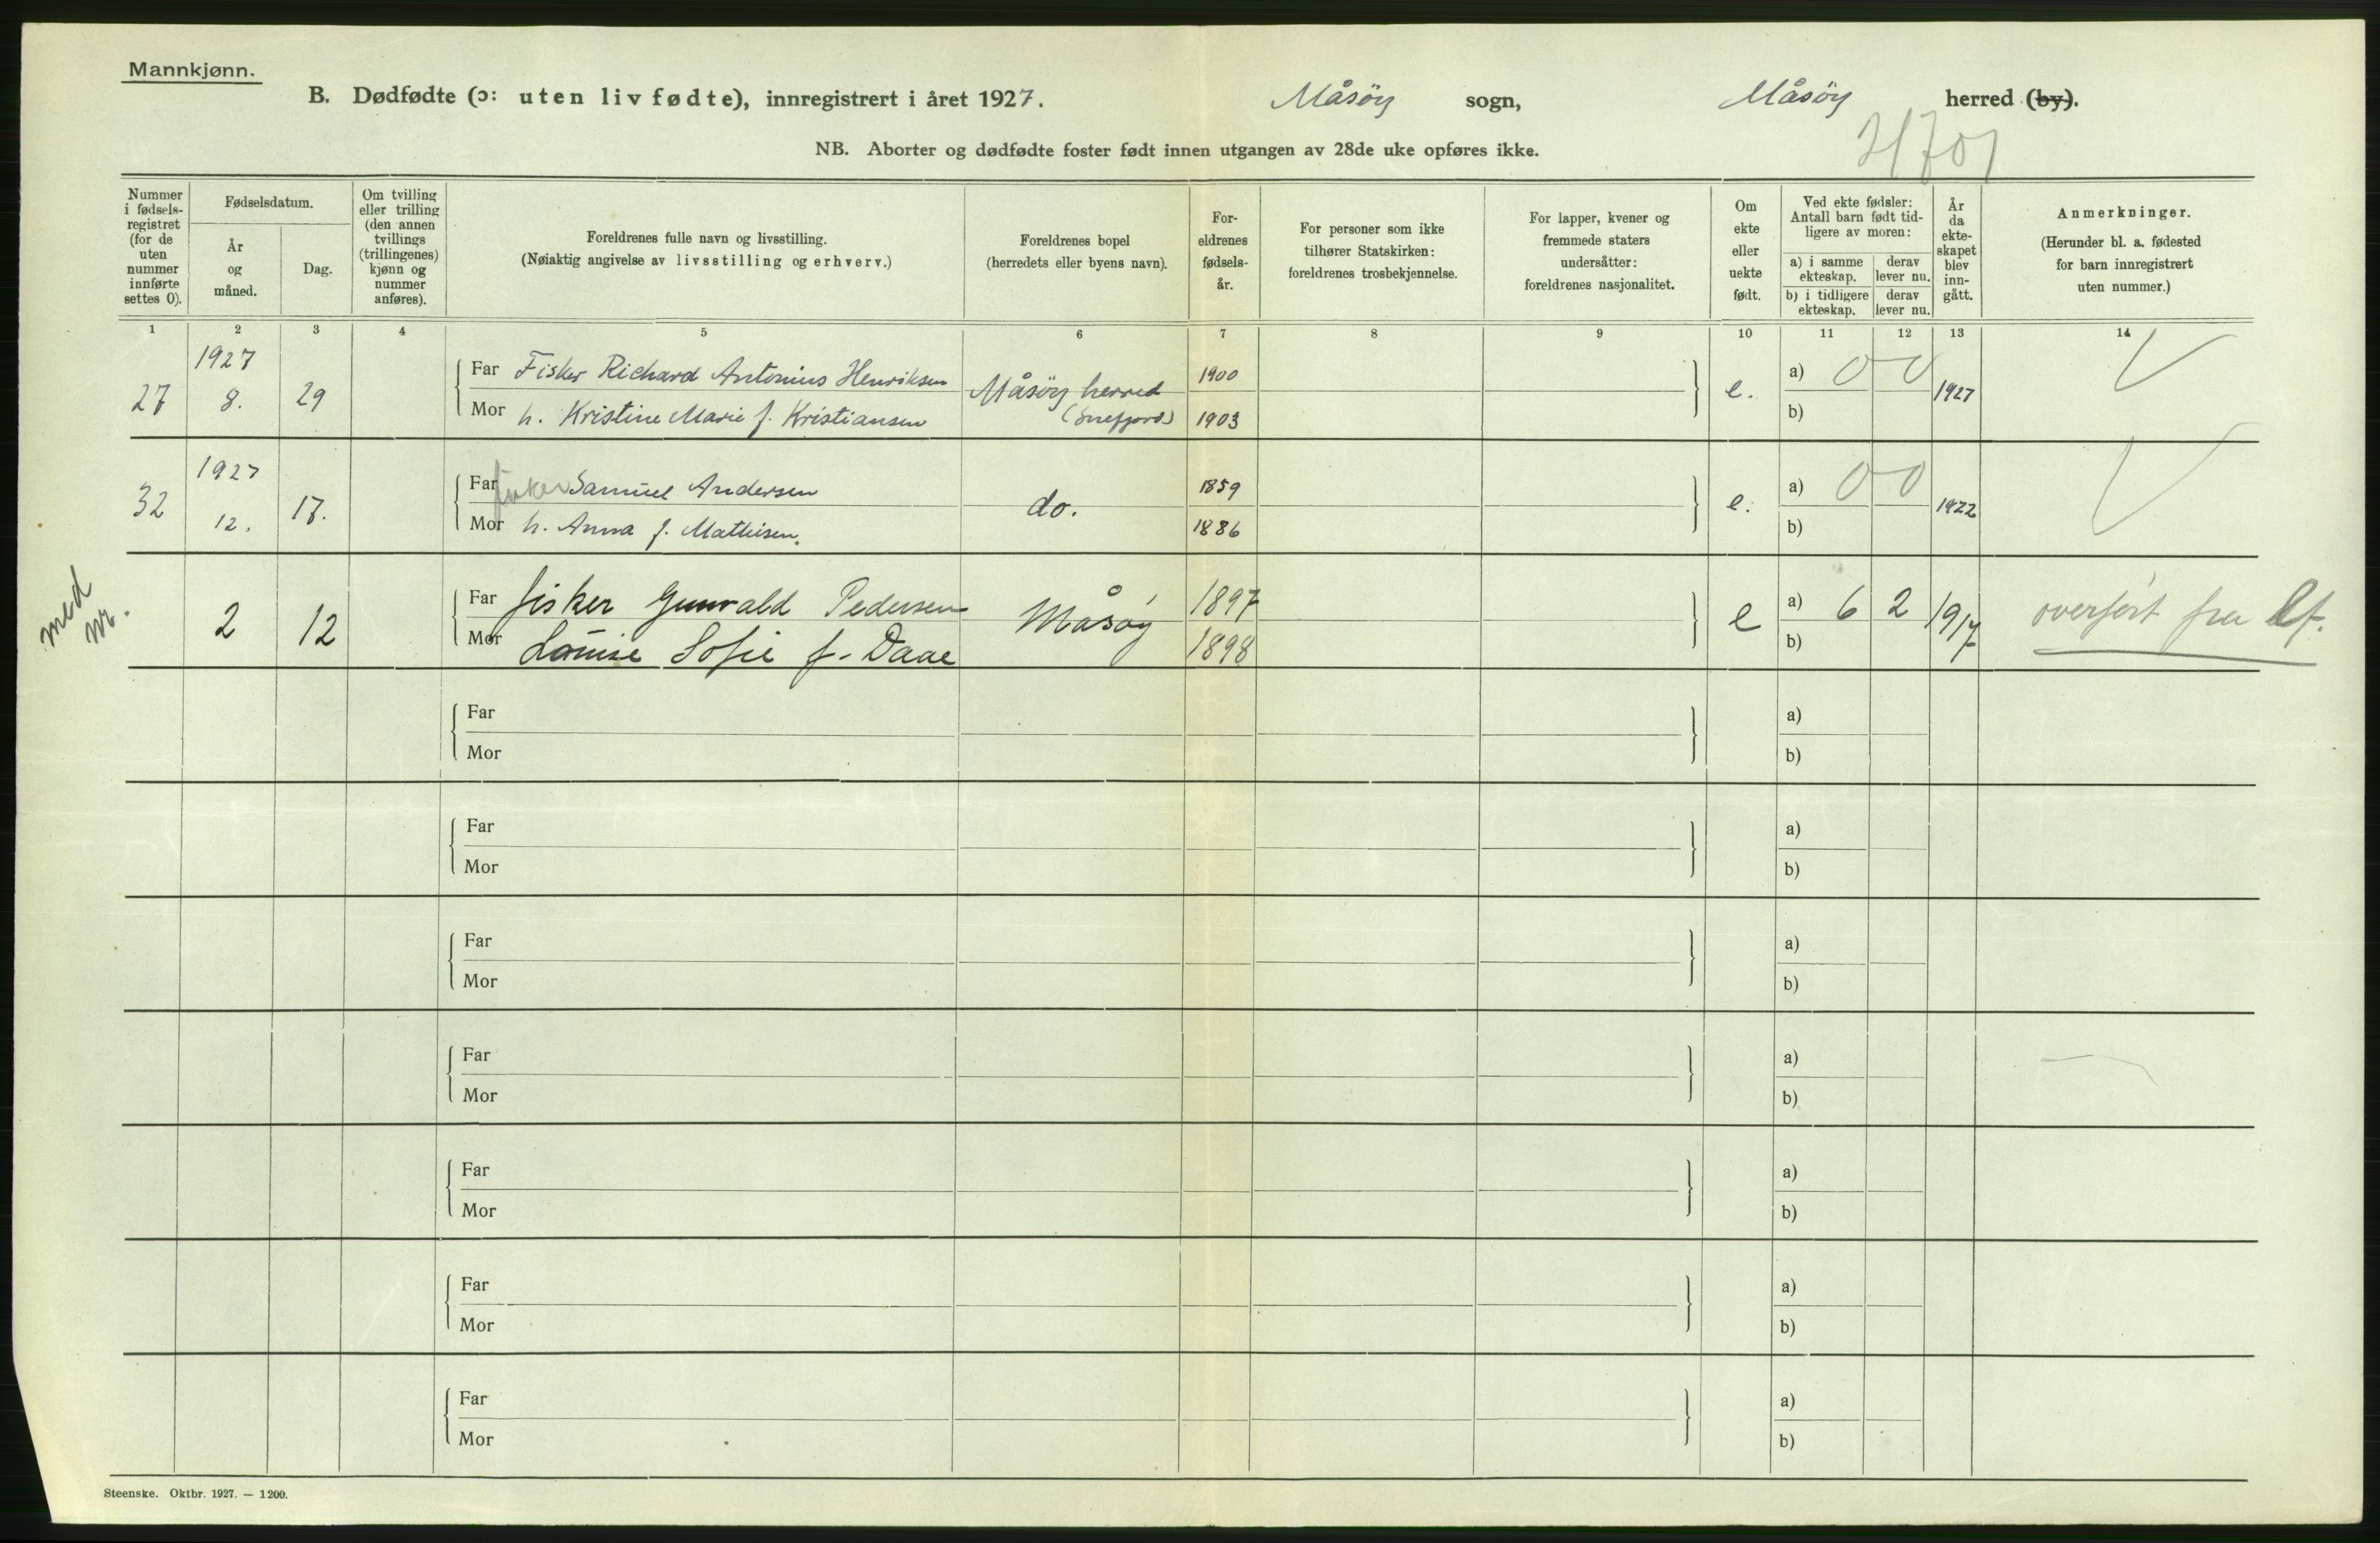 Mannkjønn.
B. Dødfødte (ɔ: uten liv fødte), innregistrert i året 1927. Måsøy sogn, Måsøy herred (by).
NB. Aborter og dødfødte foster født innen utgangen av 28de uke opføres ikke.
Nummer i fødsels-registret (for de uten nummer innførte settes 0).
Fødselsdatum.
År og måned.
Dag.
Om tvilling eller trilling (den annen tvillings (trillingenes) kjønn og nummer anføres).
Foreldrenes fulle navn og livsstilling.
(Nøiaktig angivelse av livsstilling og erhverv.)
Foreldrenes bopel
(herredets eller byens navn).
For-eldrenes fødsels-år.
For personer som ikke tilhører Statskirken: foreldrenes trosbekjennelse.
For lapper, kvener og fremmede staters undersåtter: foreldrenes nasjonalitet.
Om ekte eller uekte født.
Ved ekte fødsler: Antall barn født tid-ligere av moren:
a) i samme ekteskap. derav lever nu.
b) i tidligere ekteskap. derav lever nu.
År da ekte-skapet blev inn-gått.
Anmerkninger.
(Herunder bl. a. fødested for barn innregistrert uten nummer.)
1 2 3 4 5 6 7 8 9 10 11 12 13 14
27 1927 8. 29
Far Fisker Richard Antonius Henriksen Måsøy herred 1900 e. a) 0 0 1927
Mor h. Kristine Marie f. Kristiansen (Snefjord) 1903 b)
32 1927 12. 17.
Far fisker Samuel Andersen do. 1859 e. a) 0 0 1922
Mor h. Anna f. Mathisen. 1886 b)
med nr.
2 12
Far fisker Gunvald Pedersen Måsøy 1897 e a) 6 2 1917 overført fra lf.
Mor Louise Sofie f. Daae 1898 b)
Far a)
Mor b)
Far a)
Mor b)
Far a)
Mor b)
Far a)
Mor b)
Far a)
Mor b)
Far a)
Mor b)
Far a)
Mor b)
Steenske. Oktbr. 1927. — 1200.